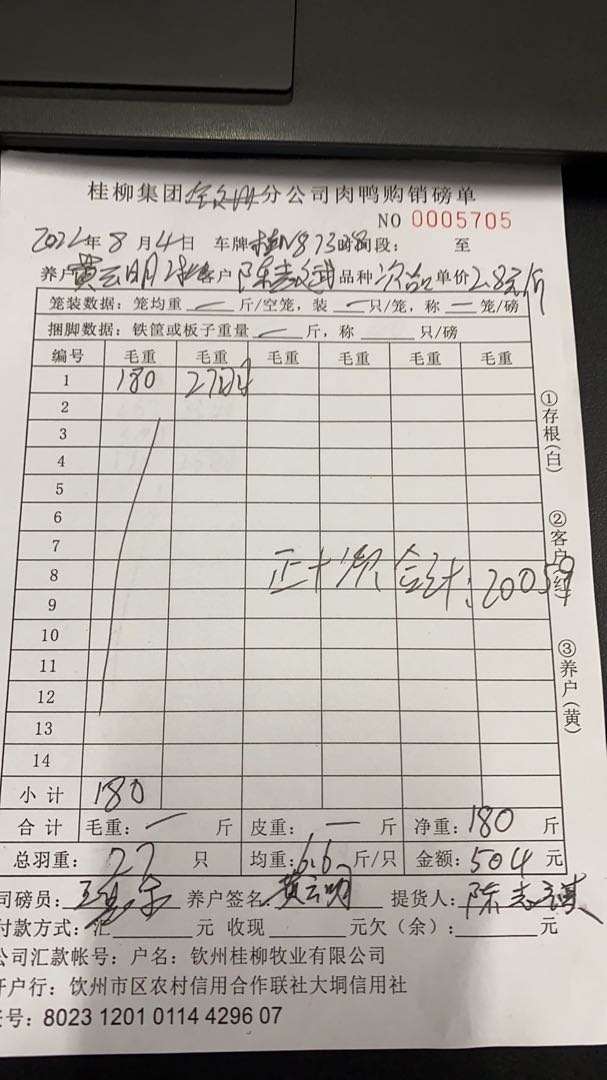 桂柳集团 分公司肉鸭购销磅单
NO 0005705
2022年8月4日 车牌 873时间段： 至
养户 黄云明 客户 陈志 品种 次品 单价 2.8元/斤
笼装数据：笼均重 一 斤/空笼，装 一 只/笼，称 一 笼/磅
捆脚数据：铁筐或板子重量 一 斤，称 只/磅
编号 毛重 毛重 毛重 毛重 毛重 毛重
1 180 27只
2
3
4
5
6
7
8
9
10
11
12
13
14
正+次 合计：20059
小计 180
合计 毛重：一 斤 皮重：一 斤 净重：180 斤
总羽重： 27 只 均重：6.6 斤/只 金额：504 元
司磅员： 养户签名 黄云明 提货人：陈志
付款方式： 元 收现 元欠（余）： 元
公司汇款帐号：户名：钦州桂柳牧业有限公司
开户行：饮州市区农村信用合作联社大垌信用社
账号：8023 1201 0114 4296 07
①存根（白）
②客户（红）
③养户（黄）